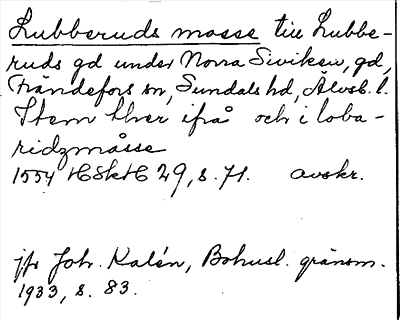 Lubberuds mosse till Lubbe-
ruds gd under Norra Siviken, gd,
Frändefors sn, Sundals hd, Älvsb. l.
Item thver ifrå och i loba-
ridzmåsse
1554 HSkH 29, s. 71. avskr.
jfr Joh. Kalén, Bohusl. gränsm.
1933, s. 83.